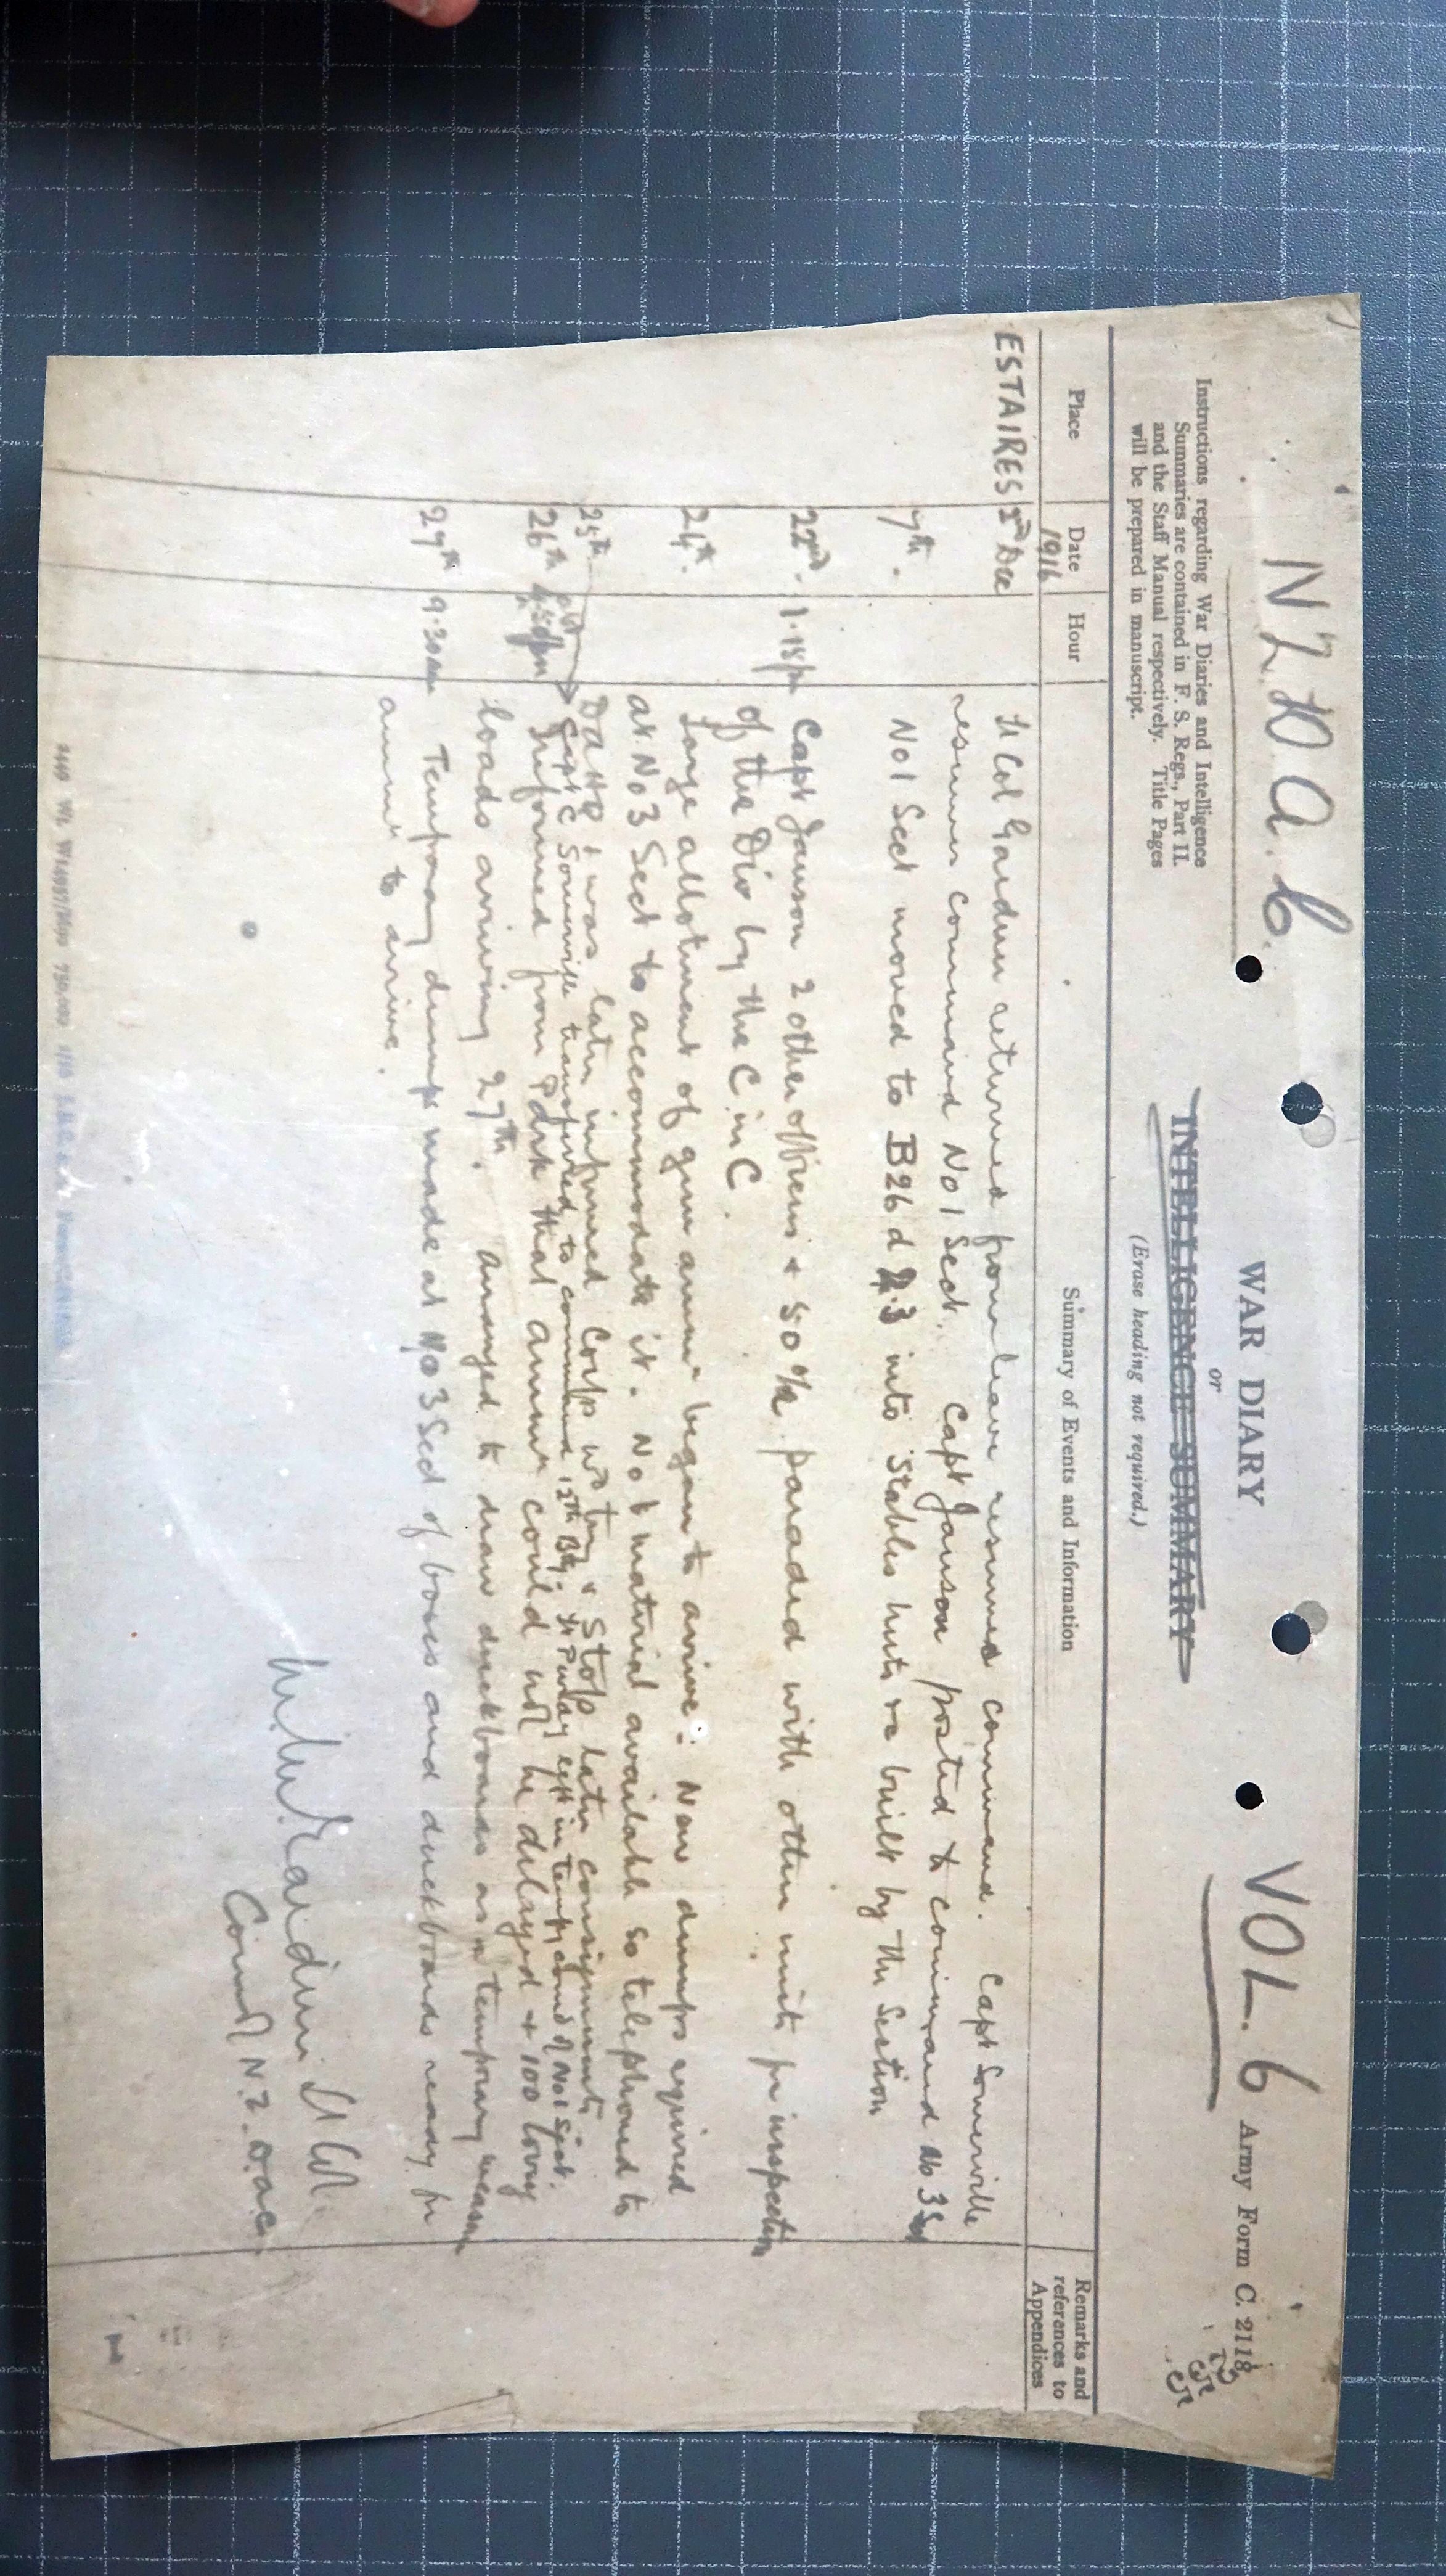 N Z D A C. VOL. 6 Army Form C. 2118
WAR DIARY
or
INTELLIGENCE SUMMARY
(Erase heading not required.)
Instructions regarding War Diaries and Intelligence
Summaries are contained in F. S. Regs., Part II.
and the Staff Manual respectively. Title Pages
will be prepared in manuscript.
Place Date Hour Summary of Events and Information Remarks and references to Appendices
1916
ESTAIRES 2nd Dec Lt Col Gardner returned from leave resumed command. Capt Somerville
resumes command No 1 Sect. Capt Janson posted to command No 3 Sect
7th. No 1 Sect moved to B26 d 2.3 into Stables huts re built by the Section
22nd. 1.15pm Capt Janson 2 other officers + 50 % paraded with other units for inspection
of the Div by the C in C.
24th. Large allotment of gun ammn began to arrive. New dumps required
at No 3 Sect to accommodate it. No material available so telephoned to
DAHQ & was later informed Corps trying stop later consignments
25th Capt C Somerville transferred to command 12th Bty. Lt Purday in temp cmd of No 1 Sect.
26th 4.30pm Informed from Park that ammn could not be delayed + 100 lorry
loads arriving 27th. Arranged to draw duckboards as a temporary measure
27th 9.30am Temporary dump made at No 3 Sect of boxes and duckboards ready for
ammn to arrive.
Gardner Lt Col.
Comdt N.Z. D.A.C.
1